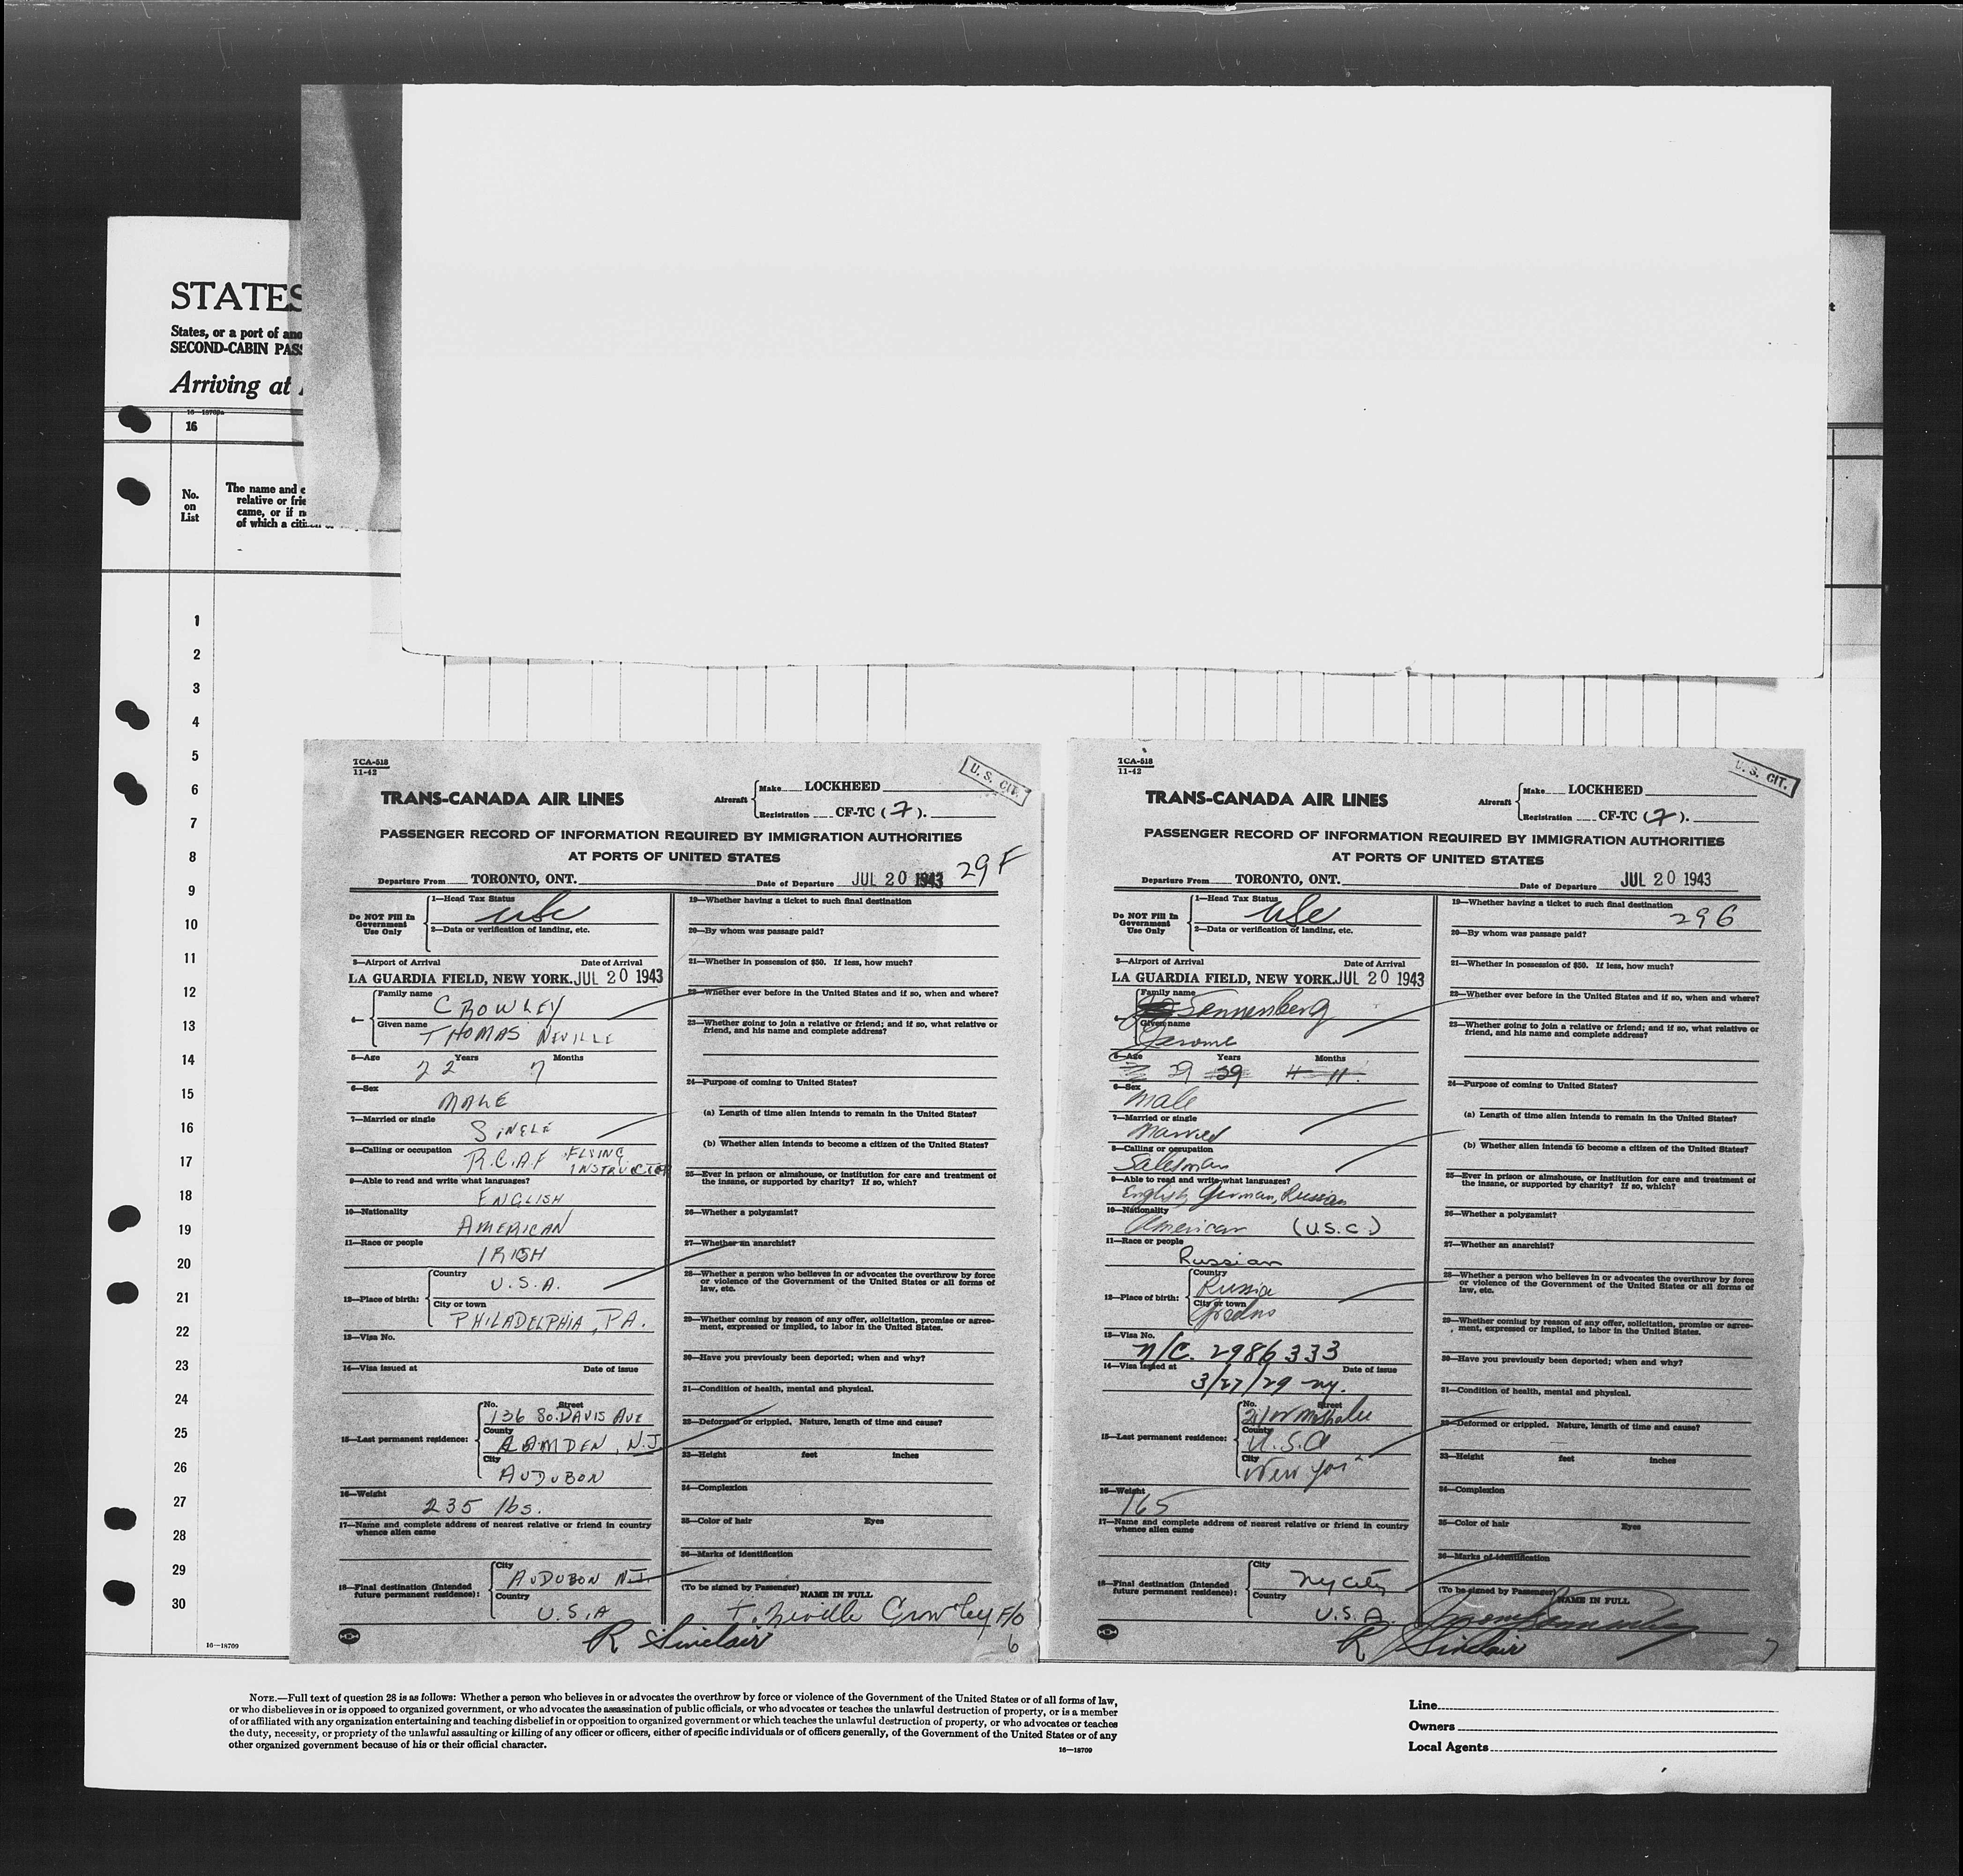 STATES
States, or a port of
SECOND-CABIN
Arriving at
16—18709a
16
No.
on
List
The name and
relative or
came, or if
of which a
1
2
3
4
5
6
7
8
9
10
11
12
13
14
15
16
17
18
19
20
21
22
23
24
25
26
27
28
29
30
16—18709
TCA-518
11-42
U. S. CIT.
TRANS-CANADA AIR LINES
Aircraft
Make LOCKHEED
Registration CF-TC (7).
PASSENGER RECORD OF INFORMATION REQUIRED BY IMMIGRATION AUTHORITIES
AT PORTS OF UNITED STATES
29 F
Departure From TORONTO, ONT. Date of Departure JUL 20 1943
Do NOT Fill In
Government
Use Only
1—Head Tax Status
USC
2—Data or verification of landing, etc.
3—Airport of Arrival Date of Arrival
LA GUARDIA FIELD, NEW YORK. JUL 20 1943
4—
Family name CROWLEY
Given name THOMAS NEVILLE
5—Age Years Months
22 7
6—Sex
MALE
7—Married or single
SINGLE
8—Calling or occupation R.C.A.F FLYING
INSTRUCTOR
9—Able to read and write what languages?
ENGLISH
10—Nationality
AMERICAN
11—Race or people
IRISH
12—Place of birth:
Country
U.S.A.
City or town
PHILADELPHIA, PA.
13—Visa No.
14—Visa issued at Date of issue
15—Last permanent residence:
No. Street
136 SO. DAVIS AVE
County
CAMDEN, N.J.
City
AUDUBON
16—Weight
235 lbs.
17—Name and complete address of nearest relative or friend in country
whence alien came
18—Final destination (Intended
future permanent residence):
City
AUDUBON N.J.
Country
U.S.A
19—Whether having a ticket to such final destination
20—By whom was passage paid?
21—Whether in possession of $50. If less, how much?
22—Whether ever before in the United States and if so, when and where?
23—Whether going to join a relative or friend; and if so, what relative or
friend, and his name and complete address?
24—Purpose of coming to United States?
(a) Length of time alien intends to remain in the United States?
(b) Whether alien intends to become a citizen of the United States?
25—Ever in prison or almshouse, or institution for care and treatment of
the insane, or supported by charity? If so, which?
26—Whether a polygamist?
27—Whether an anarchist?
28—Whether a person who believes in or advocates the overthrow by force
or violence of the Government of the United States or all forms of
law, etc.
29—Whether coming by reason of any offer, solicitation, promise or agree-
ment, expressed or implied, to labor in the United States.
30—Have you previously been deported; when and why?
31—Condition of health, mental and physical.
32—Deformed or crippled. Nature, length of time and cause?
33—Height feet inches
34—Complexion
35—Color of hair Eyes
36—Marks of identification
(To be signed by Passenger) NAME IN FULL
T. Neville Crowley F/O
R Sinclair
6
TCA-518
11-42
U. S. CIT.
TRANS-CANADA AIR LINES
Aircraft
Make LOCKHEED
Registration CF-TC (7).
PASSENGER RECORD OF INFORMATION REQUIRED BY IMMIGRATION AUTHORITIES
AT PORTS OF UNITED STATES
Departure From TORONTO, ONT. Date of Departure JUL 20 1943
Do NOT Fill In
Government
Use Only
1—Head Tax Status
USC
2—Data or verification of landing, etc.
3—Airport of Arrival Date of Arrival
LA GUARDIA FIELD, NEW YORK. JUL 20 1943
4—
Family name
Sonnenberg
Given name
Jerome
5—Age Years Months
39 39 4 11
6—Sex
Male
7—Married or single
Married
8—Calling or occupation
Salesman
9—Able to read and write what languages?
English, German, Russian
10—Nationality
American (U.S.C.)
11—Race or people
Russian
12—Place of birth:
Country
Russia
City or town
Grodno
13—Visa No.
N/C. 2986333
14—Visa issued at Date of issue
3/27/29 NY.
15—Last permanent residence:
No. Street
County
U.S.A
City
New York
16—Weight
165
17—Name and complete address of nearest relative or friend in country
whence alien came
18—Final destination (Intended
future permanent residence):
City
NY City
Country
U.S.A.
19—Whether having a ticket to such final destination
29 G
20—By whom was passage paid?
21—Whether in possession of $50. If less, how much?
22—Whether ever before in the United States and if so, when and where?
23—Whether going to join a relative or friend; and if so, what relative or
friend, and his name and complete address?
24—Purpose of coming to United States?
(a) Length of time alien intends to remain in the United States?
(b) Whether alien intends to become a citizen of the United States?
25—Ever in prison or almshouse, or institution for care and treatment of
the insane, or supported by charity? If so, which?
26—Whether a polygamist?
27—Whether an anarchist?
28—Whether a person who believes in or advocates the overthrow by force
or violence of the Government of the United States or all forms of
law, etc.
29—Whether coming by reason of any offer, solicitation, promise or agree-
ment, expressed or implied, to labor in the United States.
30—Have you previously been deported; when and why?
31—Condition of health, mental and physical.
32—Deformed or crippled. Nature, length of time and cause?
33—Height feet inches
34—Complexion
35—Color of hair Eyes
36—Marks of identification
(To be signed by Passenger) NAME IN FULL
R Sinclair
7
NOTE.—Full text of question 28 is as follows: Whether a person who believes in or advocates the overthrow by force or violence of the Government of the United States or of all forms of law,
or who disbelieves in or is opposed to organized government, or who advocates the assassination of public officials, or who advocates or teaches the unlawful destruction of property, or is a member
of or affiliated with any organization entertaining and teaching disbelief in or opposition to organized government or which teaches the unlawful destruction of property, or who advocates or teaches
the duty, necessity, or propriety of the unlawful assaulting or killing of any officer or officers, either of specific individuals or of officers generally, of the Government of the United States or of any
other organized government because of his or their official character.
16—18709
Line
Owners
Local Agents